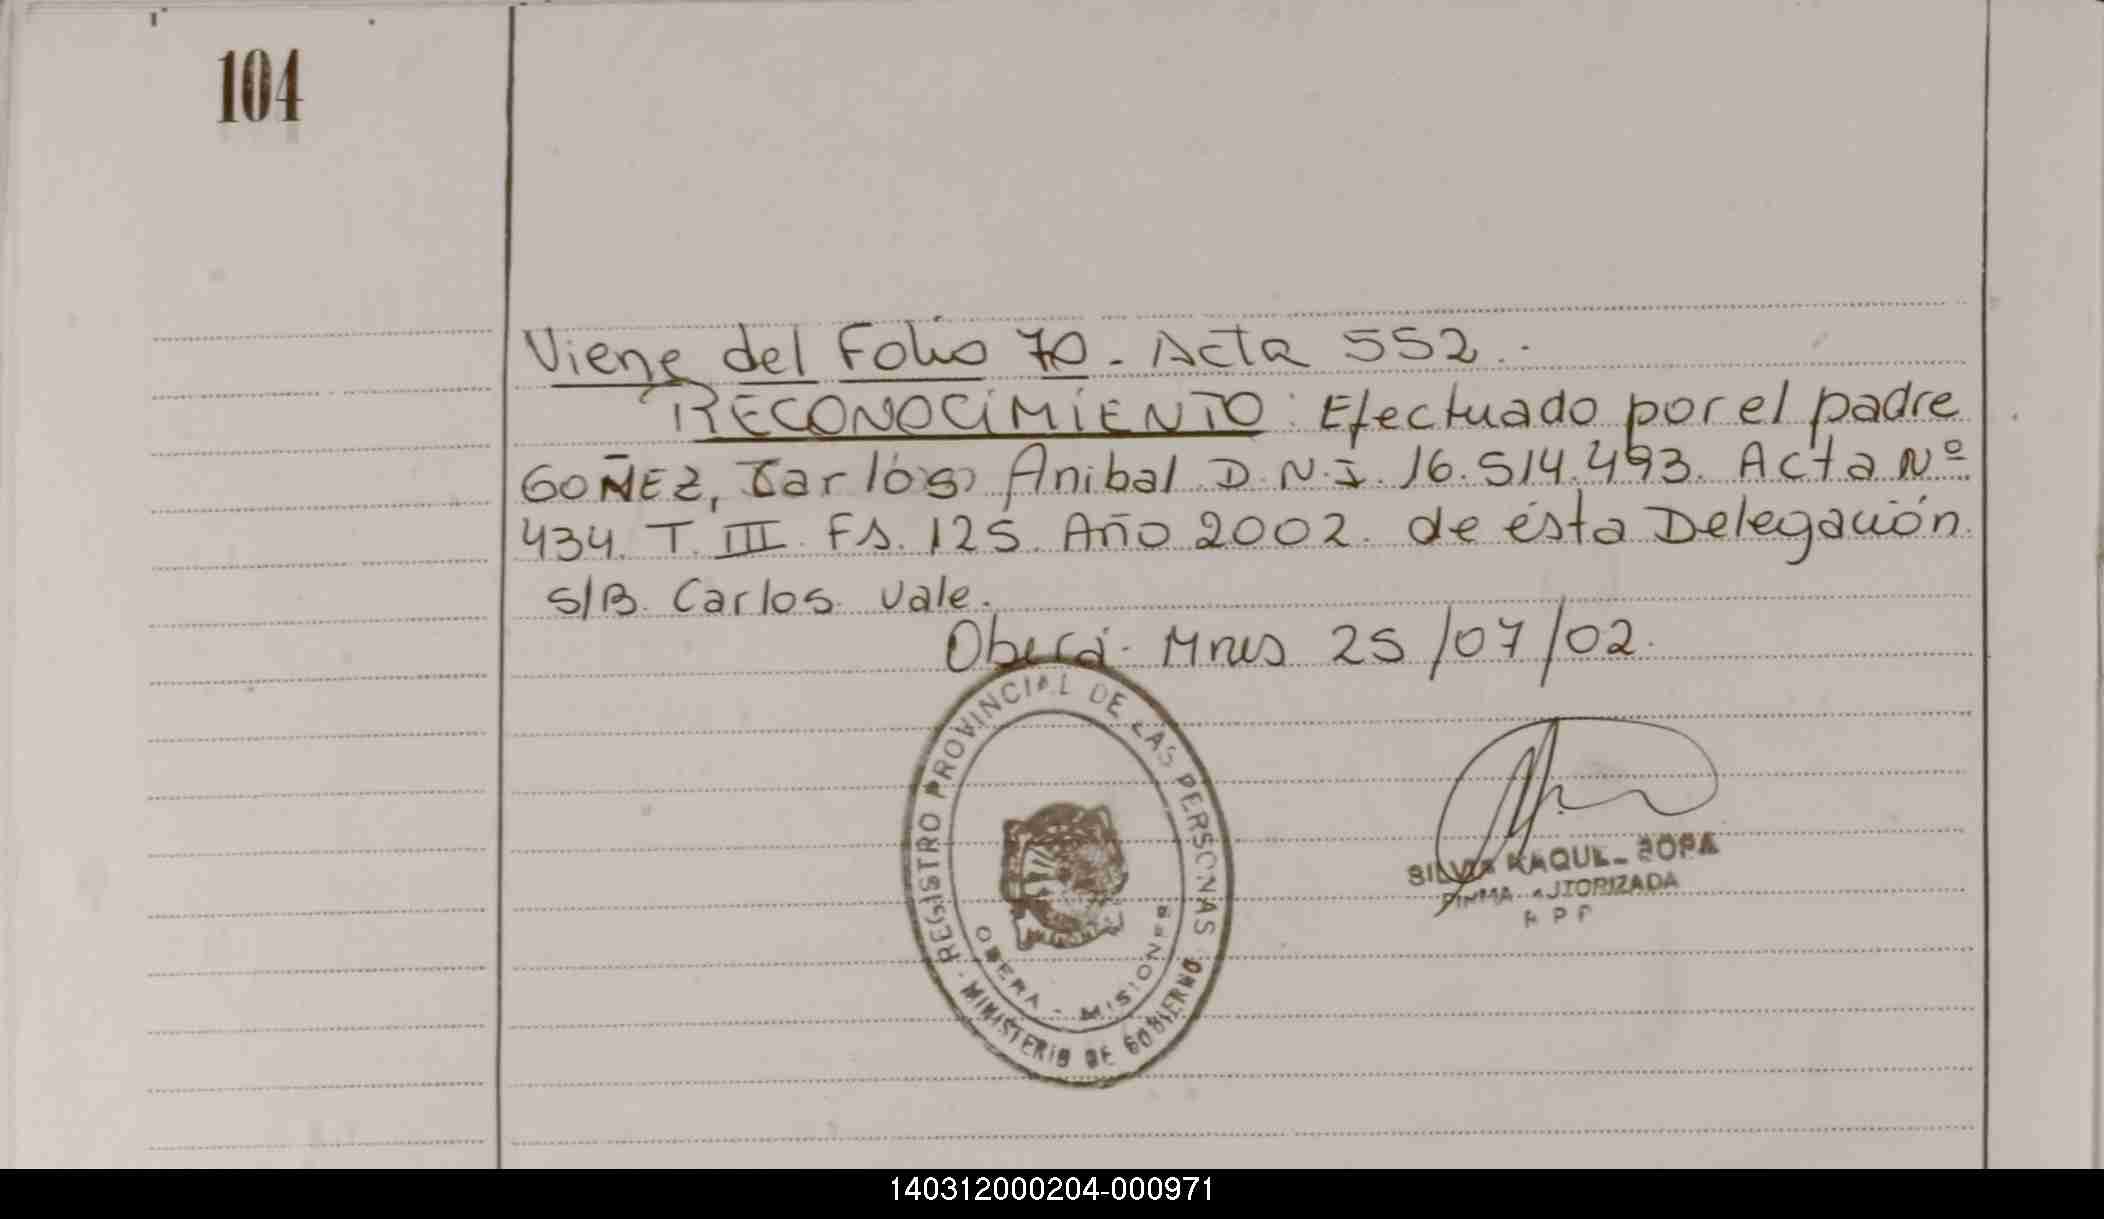 104
Viene del Folio 70 - Acta 552.-
RECONOCIMIENTO: Efectuado por el padre
GOÑEZ, Carlos Anibal D.N.I. 16.514.493. Acta Nº
434. T. III. Fs. 125. Año 2002. de ésta Delegación.
S/B. Carlos. Vale.
Oberá - Mnes 25/07/02.
REGISTRO PROVINCIAL DE LAS PERSONAS
OBERA - MISIONES
- MINISTERIO DE GOBIERNO
SILVIA RAQUEL
FIRMA AUTORIZADA
140312000204-000971